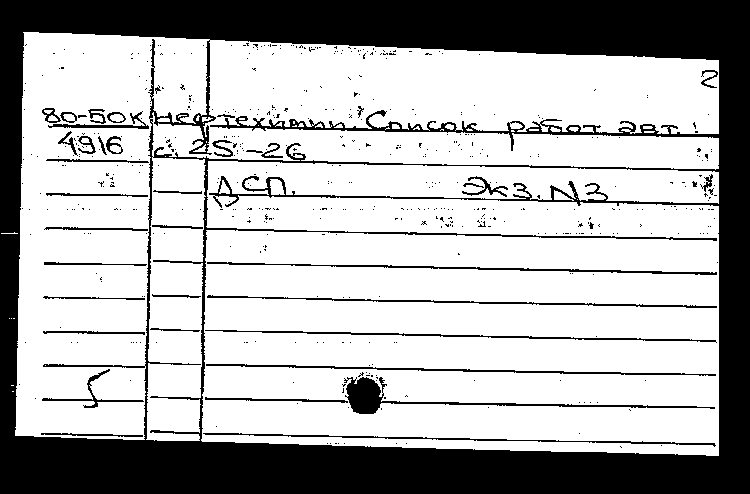 2
80-50к нефтехимии. Список работ авт.:
4916 с. 25-26
ДСП. Экз. N3
5